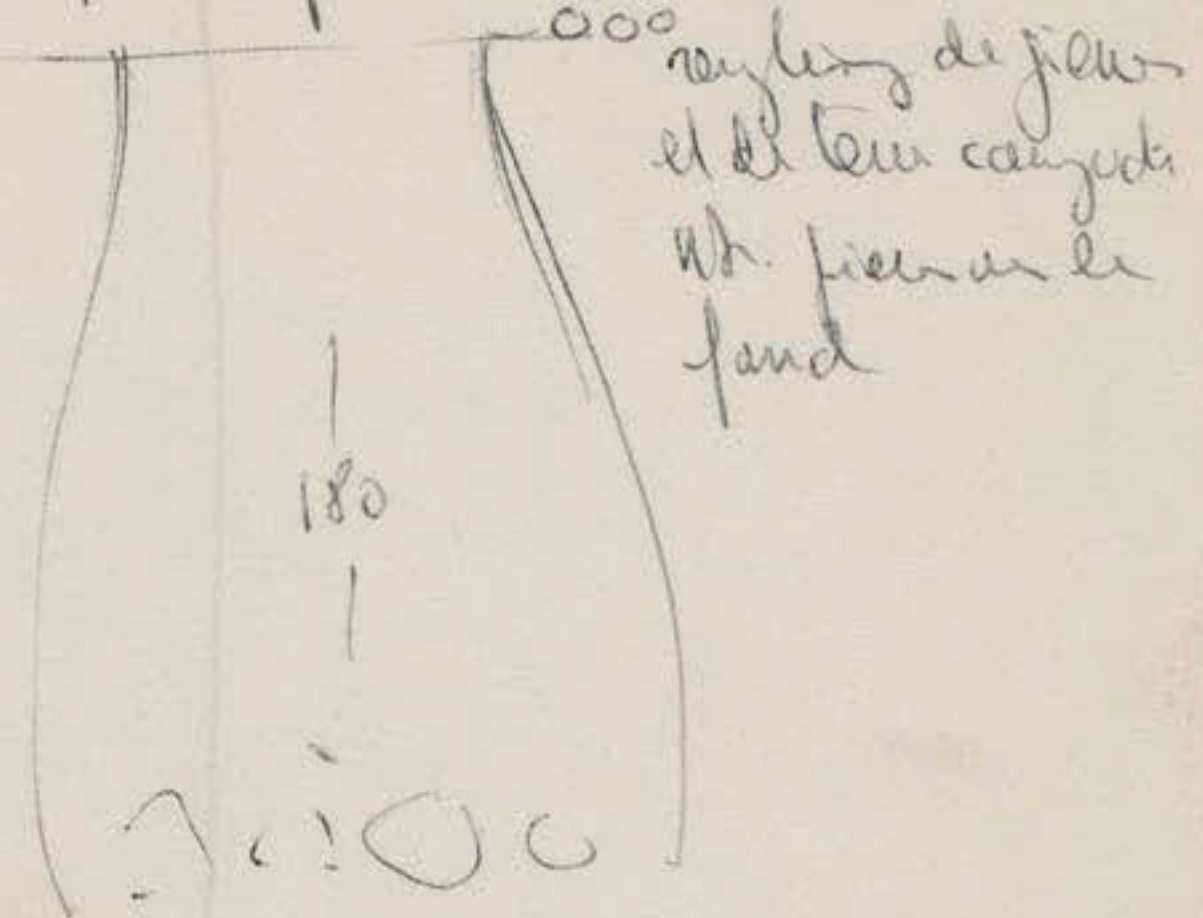 000
de pierres
et de terre compacte
nbr. pierres sur le
fond
180